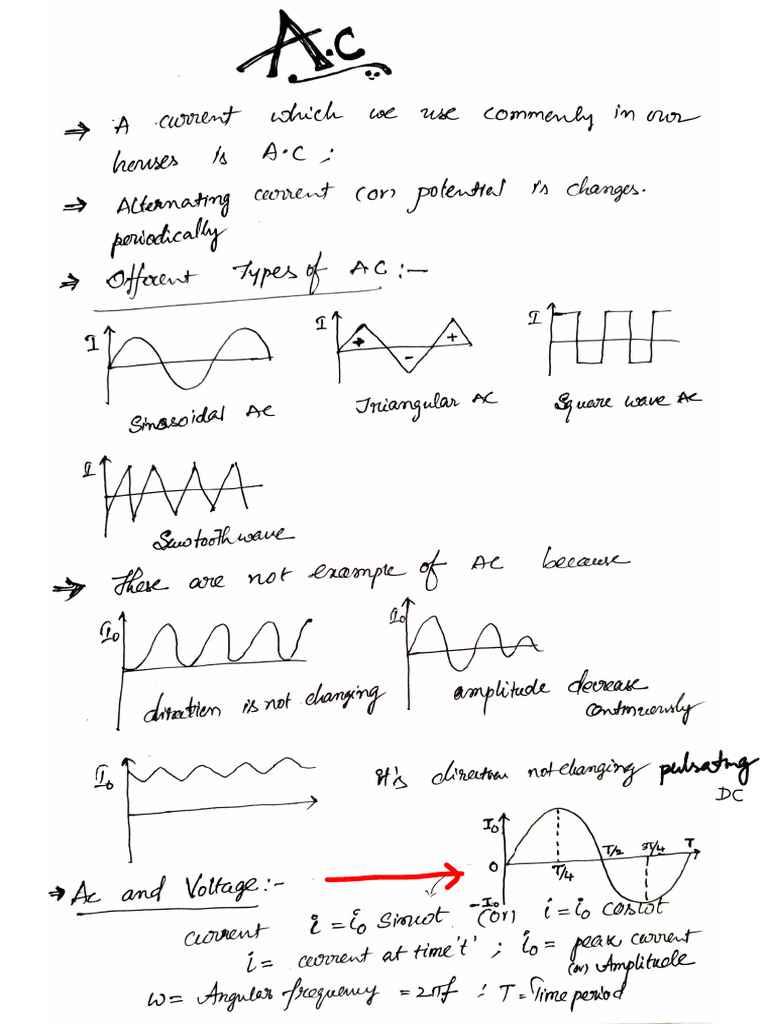 A.C
⇒ A current which we use commenly in our
houses is A.C ;
⇒ Alternating current (or) potential is changes.
periodically
⇒ Different Types of AC :-
I
I + - +
I
Sinasoidal AC
Triangular AC
Square wave AC
I
Sawtooth wave
⇒ These are not example of AC because
I₀
I₀
direction is not changing
amplitude decrease
continuously
I₀
It's direction not changing pulsating
DC
I₀
0 T/4 T/2 3T/4 T
-I₀
→ Ac and Voltage :-
current i = i₀ Sinωt (or) i = i₀ cosωt
i = current at time 't' ; i₀ = peak current
(or) Amplitude
ω = Angular frequency = 2πf ; T = Time period